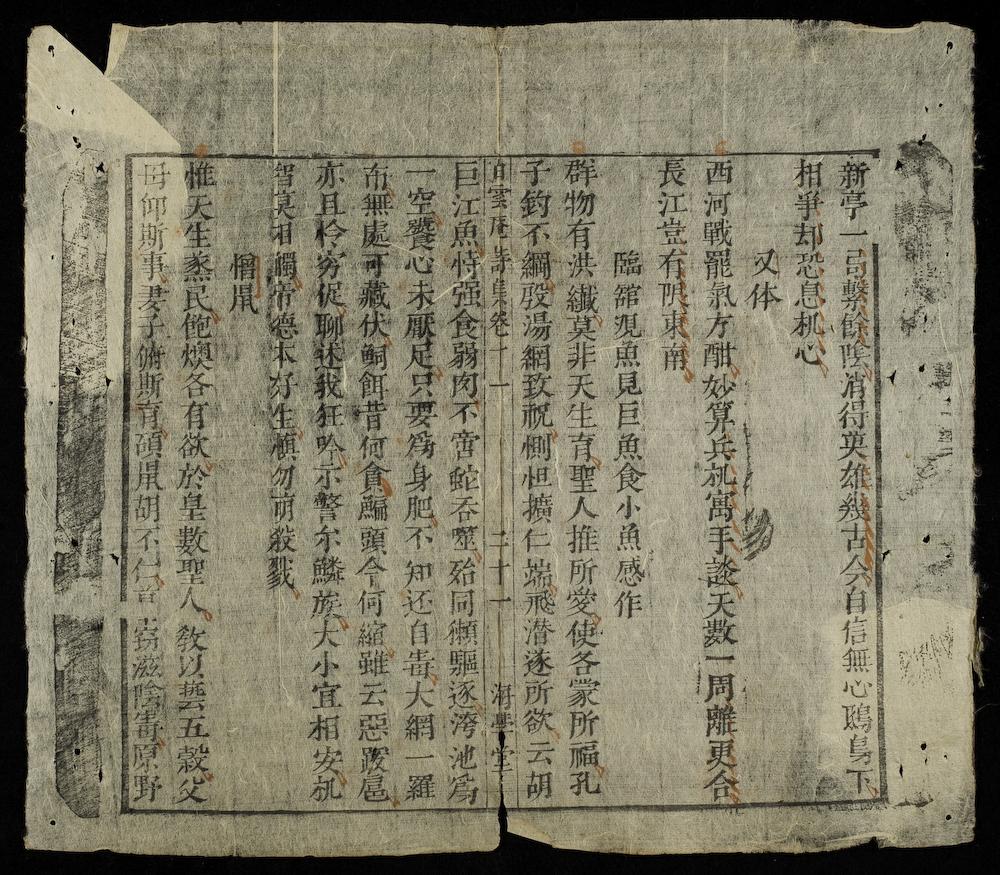 新亭一句繫餘陰消得英雄幾古今自信無心鷗鳥下
相爭却恐息机心
又体
西河戰罷氣方酣妙算兵机寓手談天數一周離更合
長江豈有限東南
臨舘覌魚見巨魚食小魚感作
群物有洪纖莫非天生育聖人推所愛使各蒙所福孔
子釣不綱殷湯網致祝惻怛擴仁端飛潜遂所欲云胡
白雲庵詩集卷十一 二十一 海學堂
巨江魚恃强食弱肉不啻蛇吞噬殆同獺驅逐洿池爲
一空饕心未厭足只要爲身肥不知还自毒大網一羅
布無處可藏伏鮦餌昔何貪鯿頭今何縮雖云惡跋扈
亦且怜穷促聊述我狂吟示警尔鱗族大小宜相安机
智莫相觸帝德本好生慎勿萌殺戮
憎鼠
惟天生烝民飽煖各有欲於皇數聖人教以蓺五穀父
母仰斯事妻子俯斯育碩鼠胡不仁 窃滋陰毒原野